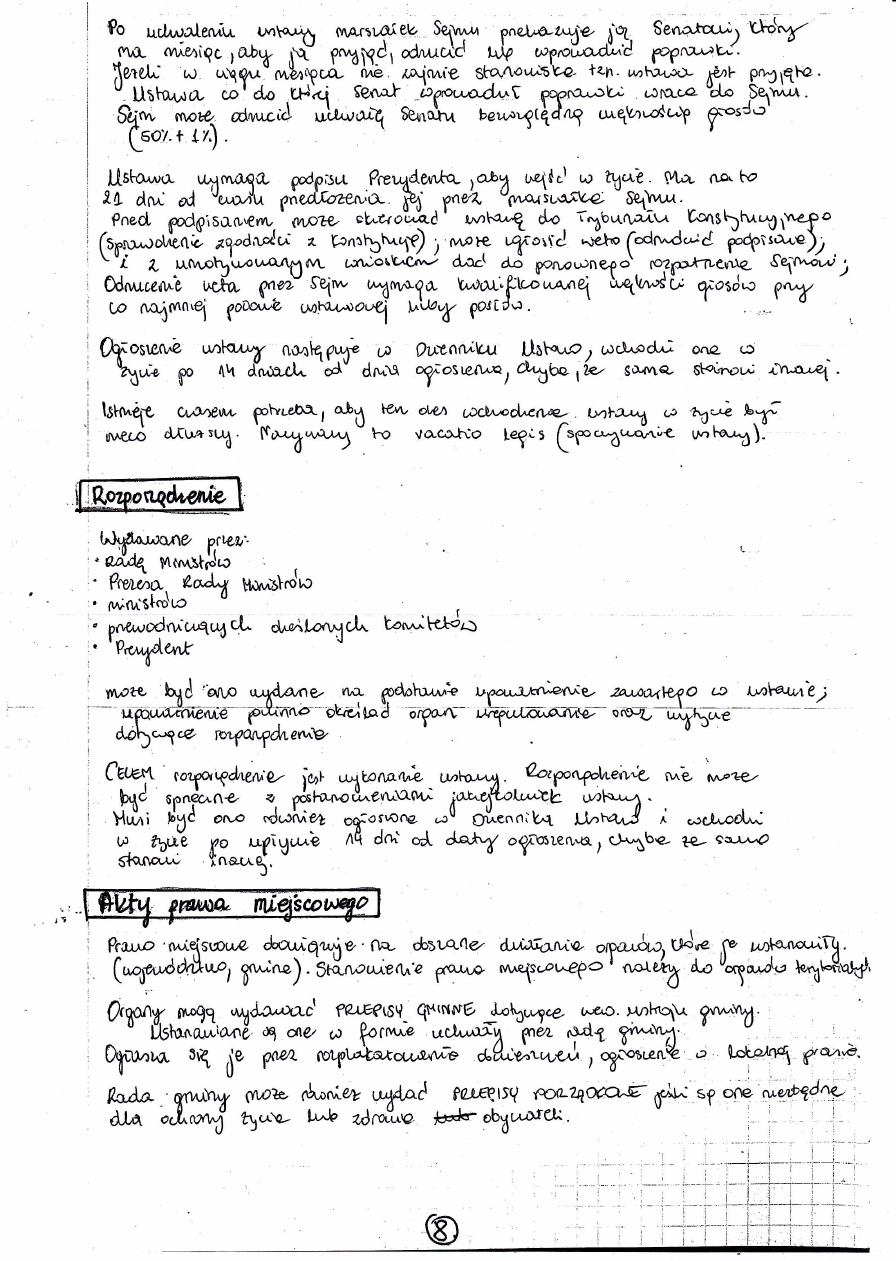 Po uchwaleniu ustawy marszałek Sejmu przekazuje ją Senatowi, który
ma miesiąc, aby ją przyjąć, odrzucić lub wprowadzić poprawki.
Jeżeli w ciągu miesiąca nie zajmie stanowiska tzn. ustawa jest przyjęta.
Ustawa co do której Senat wprowadził poprawki wraca do Sejmu.
Sejm może odrzucić uchwałę Senatu bezwzględną większością głosów
(50% + 1%).
Ustawa wymaga podpisu Prezydenta, aby wejść w życie. Ma na to
21 dni od czasu przedłożenia jej przez marszałka Sejmu.
Przed podpisaniem może skierować ustawę do Trybunału Konstytucyjnego
(sprawdzenie zgodności z Konstytucją); może zgłosić weto (odrzucić podpisanie);
i z umotywowanym wnioskiem dać do ponownego rozpatrzenia Sejmowi;
Odrzucenie veta przez Sejm wymaga kwalifikowanej większości głosów przy
co najmniej połowie ustawowej liczby posłów.
Ogłoszenie ustawy następuje w Dzienniku Ustaw, wchodzi ona w
życie po 14 dniach od dnia ogłoszenia, chyba, że sama stanowi inaczej.
Istnieje czasem potrzeba, aby ten okres wchodzenia ustawy w życie był
nieco dłuższy. Nazywamy to vacatio legis (spoczywanie ustawy).
Rozporządzenie
Wydawane przez:
• Radę Ministrów
• Prezesa Rady Ministrów
• ministrów
• przewodniczących określonych komitetów
• Prezydent
może być ono wydane na podstawie upoważnienia zawartego w ustawie;
upoważnienie powinno określać organ uregulowania oraz wytyczne
dotyczące rozporządzenia
CELEM rozporządzenia jest wykonanie ustawy. Rozporządzenie nie może
być sprzeczne z postanowieniami jakiejkolwiek ustawy.
Musi być ono również ogłoszone w Dzienniku Ustaw i wchodzi
w życie po upływie 14 dni od daty ogłoszenia, chyba że samo
stanowi inaczej.
Akty prawa miejscowego
Prawo miejscowe obowiązuje na obszarze działania organów, które je ustanowiły.
(województwo, gmina). Stanowienie prawa miejscowego należy do organów terytorialnych
Organy mogą wydawać PRZEPISY GMINNE dotyczące wew. ustroju gminy.
Ustanawiane są one w formie uchwały przez radę gminy.
Ogłasza się je przez rozplakatowanie obwieszczeń, ogłoszenie w lokalnej prasie.
Rada gminy może również wydać PRZEPISY PORZĄDKOWE jeśli są one niezbędne
dla ochrony życia lub zdrowia obywateli.
8